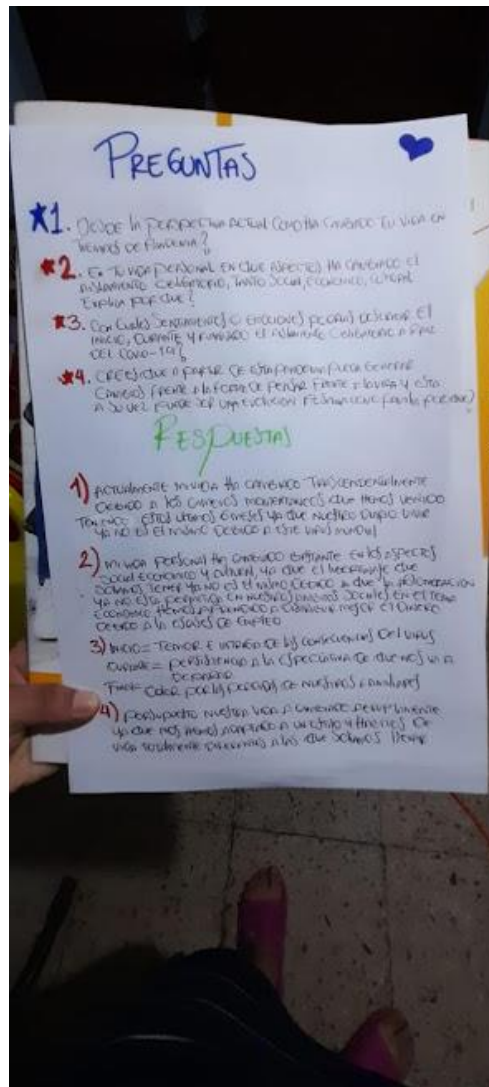 PREGUNTAS
★1. DESDE la PERSPECTIVA ACTUAL COMO HA CAMBIADO TU VIDA EN
TIEMPOS DE PANDEMIA?
★2. EN TU VIDA PERSONAL EN QUE ASPECTOS HA CAMBIADO EL
AISLAMIENTO OBLIGATORIO, TANTO SOCIAL, ECONOMICO, CULTURAL
EXPLICA POR QUE?
★3. CON CUALES SENTIMIENTOS O EMOCIONES PODRIAS DESCRIBIR EL
INICIO, DURANTE Y FINALIZADO EL AISLAMIENTO OBLIGATORIO A RAIZ
DEL COVID-19?
★4. CREES QUE A PARTIR DE ESTA PANDEMIA PUEDA GENERAR
CAMBIOS FRENTE A la FORMA DE PENSAR FRENTE A la VIDA Y ESTA
A SU VEZ PUEDE SER UNA EVOLUCION POR QUE?
RESPUESTAS
1) ACTUALMENTE MI VIDA HA CAMBIADO TRASCENDENTALMENTE
DEBIDO A LOS CAMBIOS QUE HEMOS VENIDO
TENIENDO ESTOS ULTIMOS MESES YA QUE NUESTRO DIARIO VIVIR
YA NO ES EL MISMO DEBIDO A ESTE VIRUS MUNDIAL
2) MI VIDA PERSONAL HA CAMBIADO BASTANTE EN LOS ASPECTOS
SOCIAL ECONOMICO Y CULTURAL, YA QUE EL QUE
SOLIAMOS TENER YA NO ES EL MISMO DEBIDO A QUE LA AGLOMERACION
YA NO ESTA PERMITIDA EN NUESTROS SOCIALES EN EL TEMA
ECONOMICO HEMOS APRENDIDO A MEJOR EL DINERO
DEBIDO A LA ESCASES DE EMPLEO
3) INICIO = TEMOR E INTRIGA DE LAS CONSECUENCIAS DEL VIRUS
DURANTE = A LA ESPECTATIVA DE QUE NOS VA A
DEPARAR
FINAL = DOLOR POR LAS PERDIDAS DE NUESTROS FAMILIARES
4) POR SUPUESTO NUESTRA VIDA A CAMBIADO
YA QUE NOS HEMOS ADAPTADO A UN ESTILO Y DE
VIDA TOTALMENTE DIFERENTES A LAS QUE SOLIAMOS LLEVAR